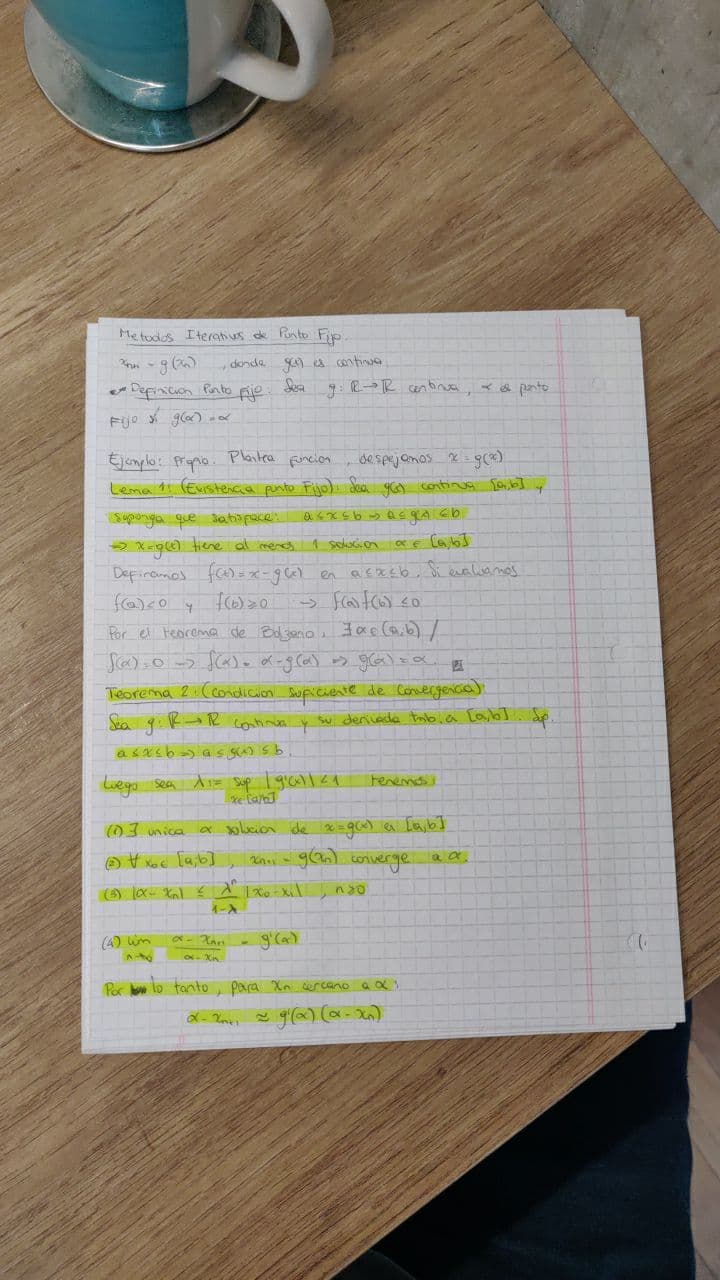 Metodos Iterativos de Punto Fijo.
xₙ₊₁ = g(xₙ) , donde g(x) es continua.
Definicion Punto Fijo: Sea g: ℝ→ℝ continua, α es punto
Fijo si g(α) = α
Ejemplo: Propio. Plantea funcion, despejamos x = g(x)
Lema 1: (Existencia punto Fijo): Sea g(x) continua [a,b] y
suponga que satisface: a≤x≤b ⇒ a≤g(x)≤b
⇒ x=g(x) tiene al menos 1 solucion α∈[a,b]
Definamos f(x)=x-g(x) en a≤x≤b. Si evaluamos
f(a)≤0 y f(b)≥0 → f(a)f(b) ≤0
Por el teorema de Bolzano, ∃α∈(a,b) /
f(α)=0 → f(α)= α-g(α) ⇒ g(α)=α.
Teorema 2: (condicion suficiente de convergencia)
Sea g: ℝ→ℝ continua y su derivada tmb. a [a,b]. Sp.
a≤x≤b ⇒ a≤g(x)≤b.
Luego sea λ:= sup |g'(x)|<1 tenemos
x∈[a,b]
(1) ∃ unica α solucion de x=g(x) en [a,b]
(2) ∀ x₀∈[a,b] , xₙ₊₁ = g(xₙ) converge a α.
(3) |α-xₙ| ≤ λⁿ/(1-λ) |x₀-x₁| , n≥0
(4) lim n→∞ (α-xₙ₊₁)/(α-xₙ) = g'(α)
Por lo tanto, para xₙ cercano a α:
α-xₙ₊₁ ≈ g'(α)(α-xₙ)